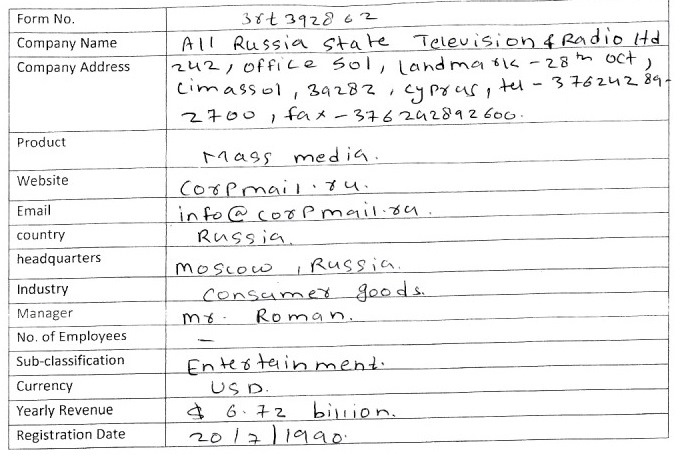 Form No. 3rt392862
Company Name All Russia State Television & Radio ltd
Company Address 242, office 501, landmark - 28th oct,
Limassol, 39282, cyprus, tel - 37624289-
2700, fax - 376242892600.
Product Mass media.
Website corpmail.ru.
Email info@corpmail.ru.
country Russia.
headquarters Moscow, Russia.
Industry consumer goods.
Manager mr. Roman.
No. of Employees —
Sub-classification Entertainment.
Currency USD.
Yearly Revenue $ 6.72 billion.
Registration Date 20/7/1990.